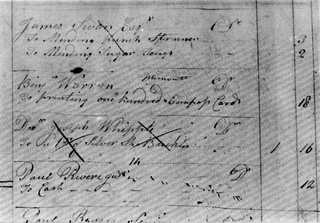 James Swan Esqr Dr
To Mending punch Strainer 3
To Mending Sugar Tongs 2
Benj Warren Dr
To printing one hundred Compass Cards 18
Docr Joseph Whipple Dr
To Silver Sh Buckles 1 16
14
Paul Revere Dr
To Cash 12
Paul